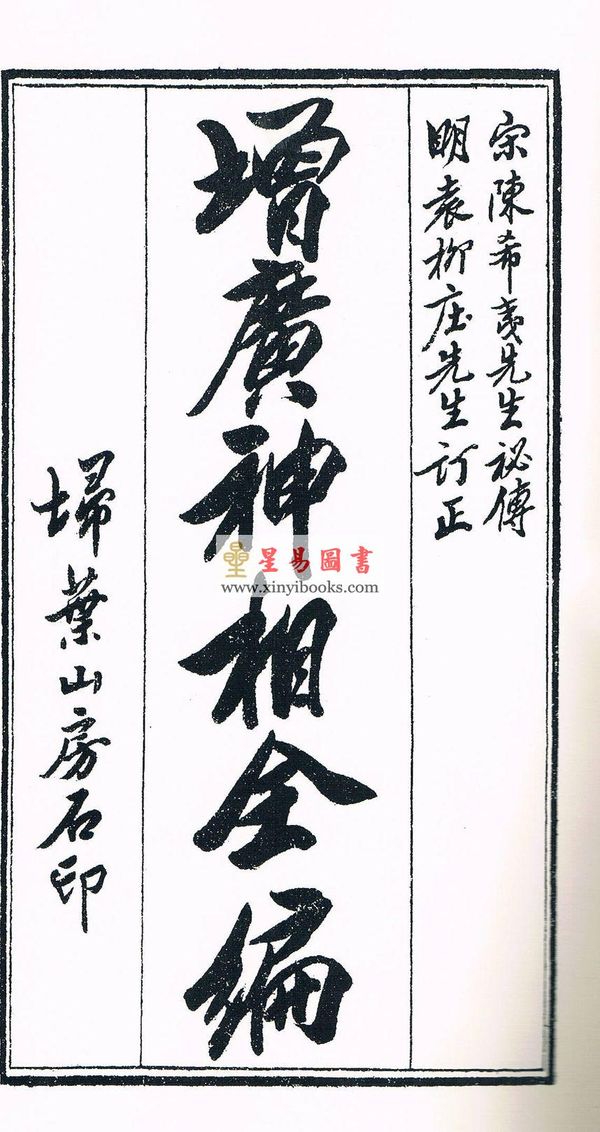 宗陳希夷先生祕傳
明袁柳庄先生訂正
增廣神相全編
埽葉山房石印
星易圖書
www.xinyibooks.com